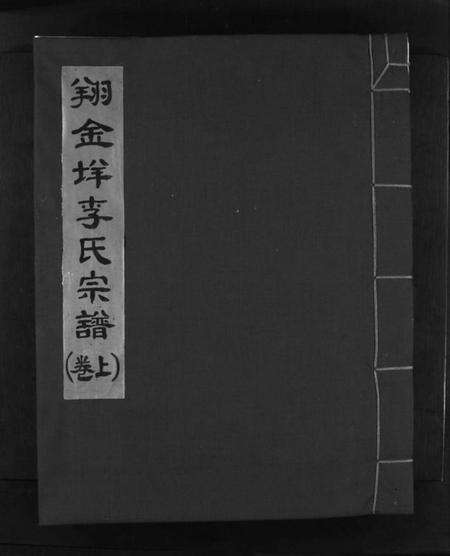 翔金垟李氏宗譜
(上卷)